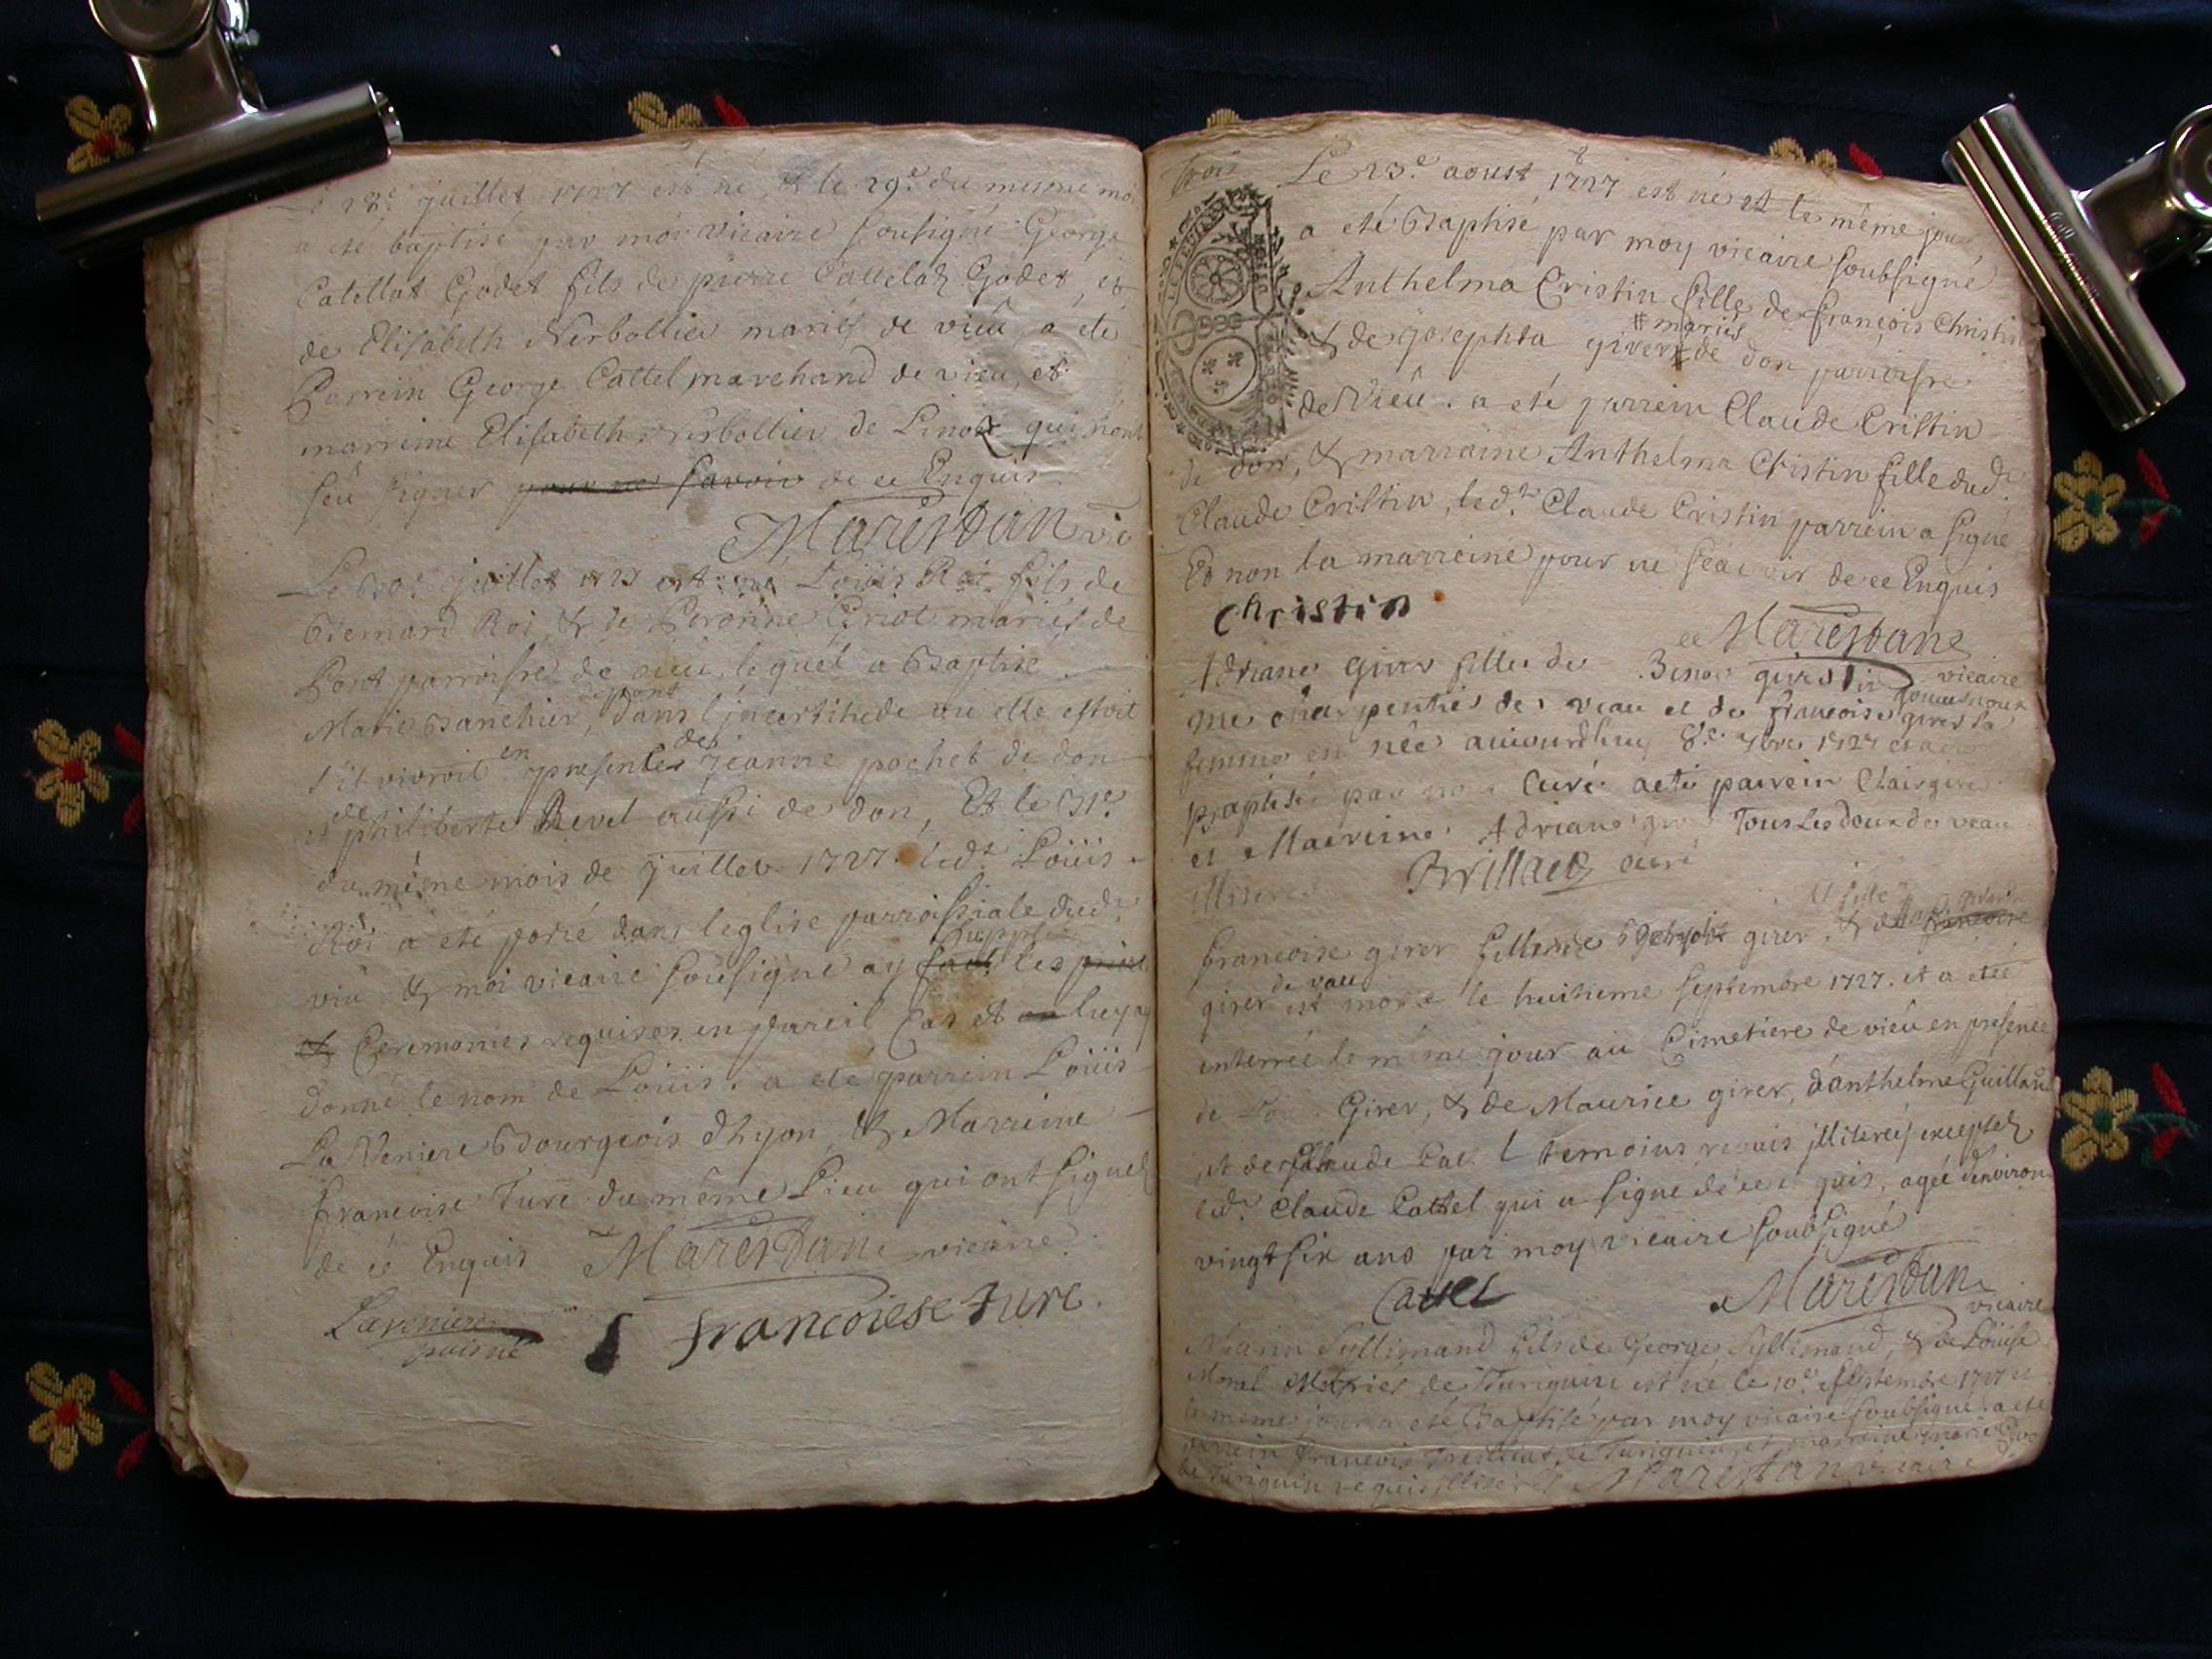 28e juillet 1727 est né, et le 29e du mesme moi
a eté baptisé par moi vicaire sousigné George
Catellat Godet fils de pierre Cattelaz Godet, et
de Elisabeth Nerbollier mariés de vieû, a eté
Parrein George Cattel marchand de vieu, et
marreine Elisabeth Nerbollier de Linod qui n'ont
seu signer pour ne savoir de ce Enquis
Marestan vic
Le 30e juillet 1727 est né Loüis Roi fils de
Bernard Roi, & de Peronne mariés de
parroisse de vieu, lequel a Baptisé
de pont
Marie Banchier, dans l'incertitude ou elle estoit
s'il vivroit en presence de jeanne pochet de don
et de philiberte Revel aussi de don, Et le 31e
du même mois de juillet 1727. led.t Loüis
Roi a eté porté dans leglise parroissiale dud.t
viu & moi vicaire sousigné ay les
et Ceremonies requises en pareil Cas et luy ay
donné le nom de Loüis. a eté parrein Loüis
La Veniere Bourgeois dLyon, & Marreine
francoise Ture du même Lieu qui ont signez
de cé Enquis Marestan vicaire
Laveniere
puisné francoiese ture.
trois Le 23e aoust 1727 est né et le même jour
a eté Baptisé par moy vicaire soubsigné
Anthelma Cristin fille de françois Christin
# mariés
& de josephta girer # de don parroisse
de Vieû. a eté parrein Claude Cristin
de don, & marraine Anthelma Christin fille dud.t
Claude Cristin, led.t Claude Cristin parrein a signé
Et non la marreine pour ne sçavoir de ce Enquis
Christin
Marestan
vicaire
Adriane girer fille de
charpentier de veau et de francoise girer sa
femme est née aujourdhuy 8e 7bre 1727 et a été
Baptisée par curé a eté parrein Clair girer
et Marreine Adriane Tous Les deux de veau
curé
francoise girer fille de girer, & de
de vau
girer est morte le huitieme septembre 1727. et a eteé
enterreé le même jour au Cimetiere de vieû en presence
de Girer, & de Maurice girer, d'anthelme Guilland
et de Claude Cattel temoins requis illiterés exceptez
led.t Claude Cattel qui a signé de ce enquis, ageé d'environ
vingt six ans par moy vicaire soubsigné
Cattel
Marestan
vicaire
fils de George & de Loüise
Moral Mariés de Turignin est né le 10e septembre 1727 et
le meme jour a eté Baptisé par moy vicaire soubsigné. a eté
parrein francois de Turignin, et marreine marie
de Turignin Marestan vicaire